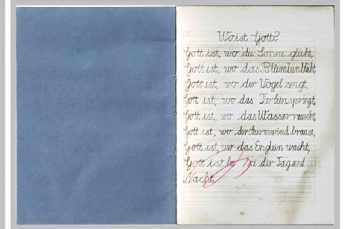 Wo ist Gott?
Gott ist, wo die Sonne glüht,
Gott ist, wo das Blümlein blüht,
Gott ist, wo der Vogel singt,
Gott ist, wo das
Gott ist, wo das Wasser rauscht,
Gott ist, wo der Sturmwind braust,
Gott ist, wo das Englein wacht,
Gott ist bei Tag und
Nacht.